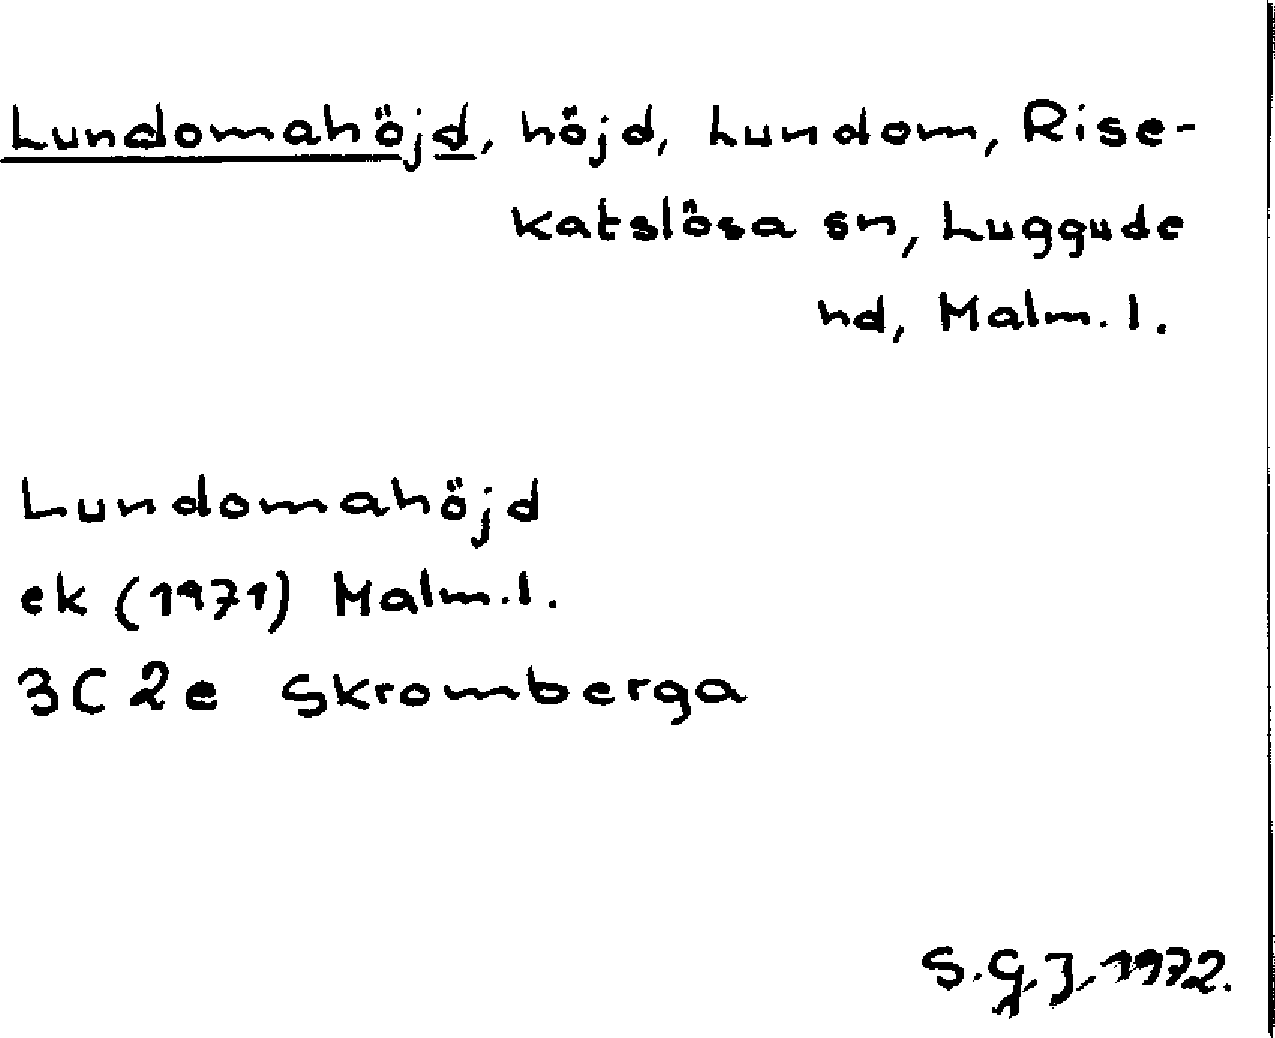 Lundomahöjd, höjd, Lundom, Rise-
katslösa sn, Luggude
hd, Malm. l.
Lundomahöjd
ek (1971) Malm. l.
3C 2e Skromberga
S. G. J. 1972.